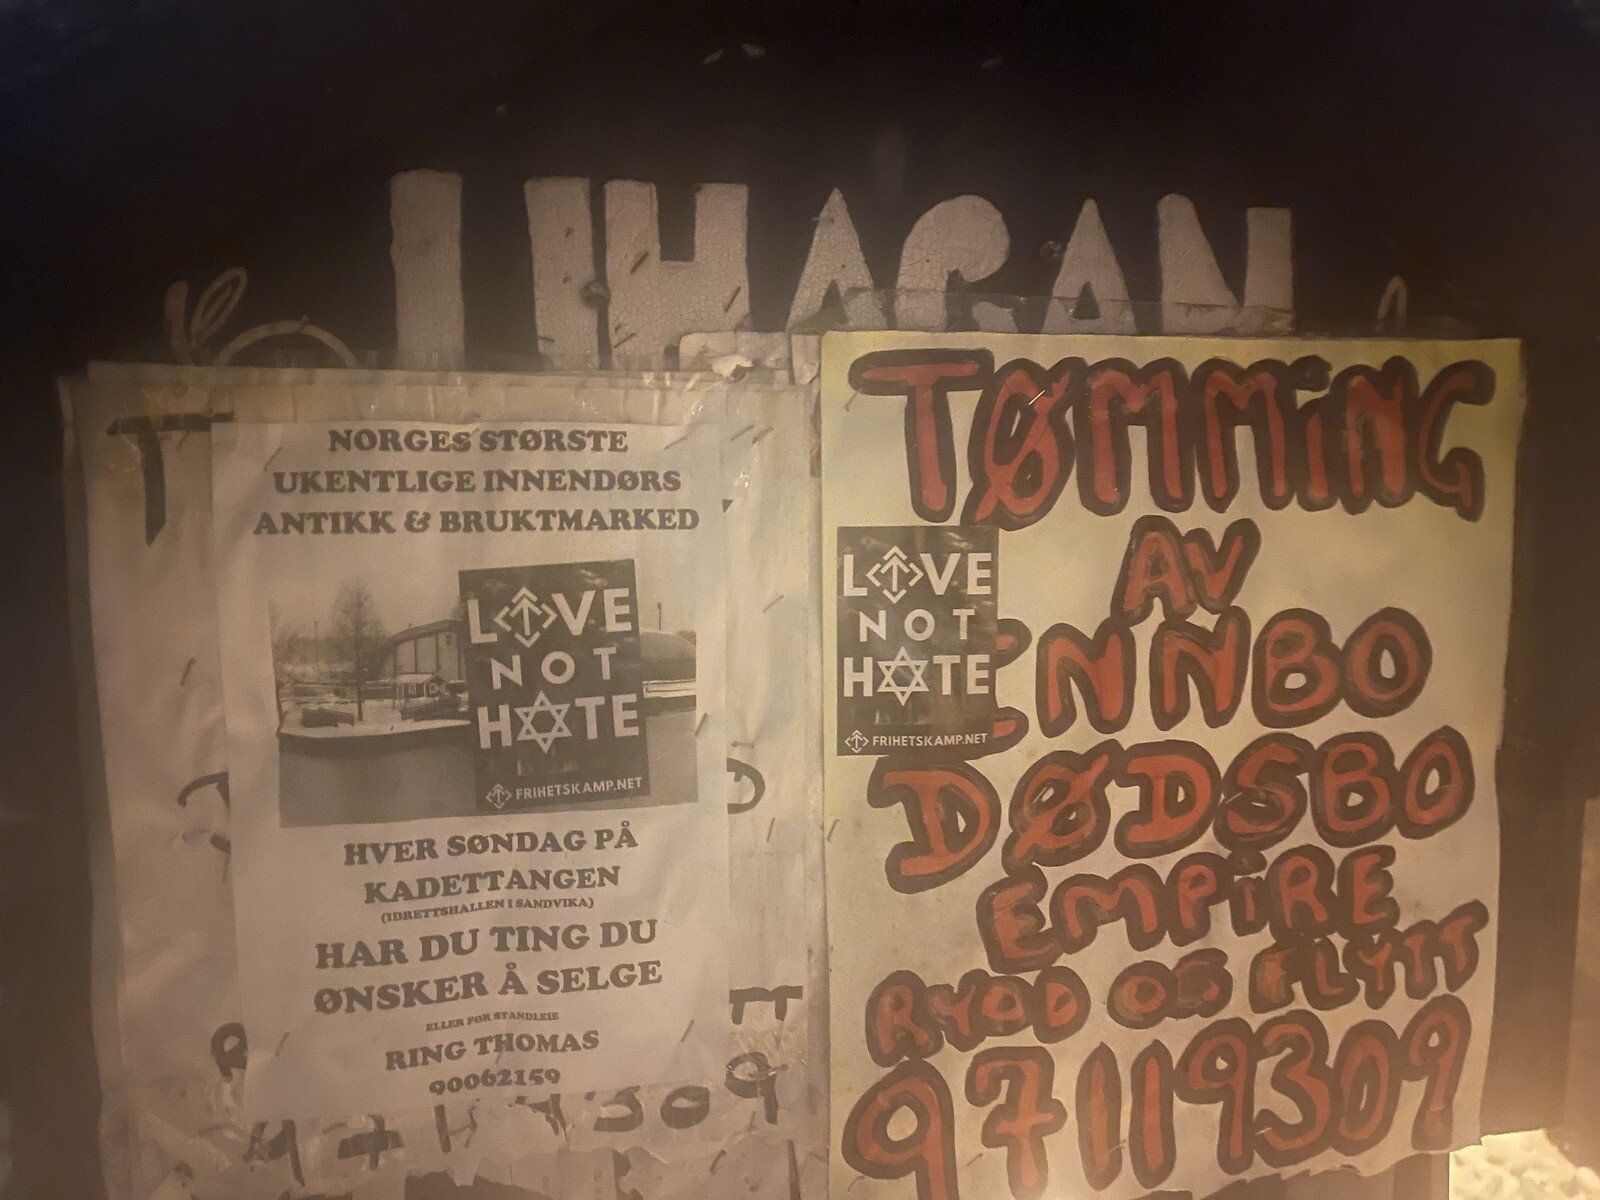 LIHAGAN
NORGES STØRSTE
UKENTLIGE INNENDØRS
ANTIKK & BRUKTMARKED
LOVE
NOT
HATE
FRIHETSKAMP.NET
HVER SØNDAG PÅ
KADETTANGEN
(IDRETTSHALLEN I SANDVIKA)
HAR DU TING DU
ØNSKER Å SELGE
ELLER FOR STANDLEIE
RING THOMAS
90062159
TØMMiNG
AV
LOVE
NOT
HATE
FRIHETSKAMP.NET
INNBO
DØDSBO
EMPiRE
RYDD OG FLYTT
97119309